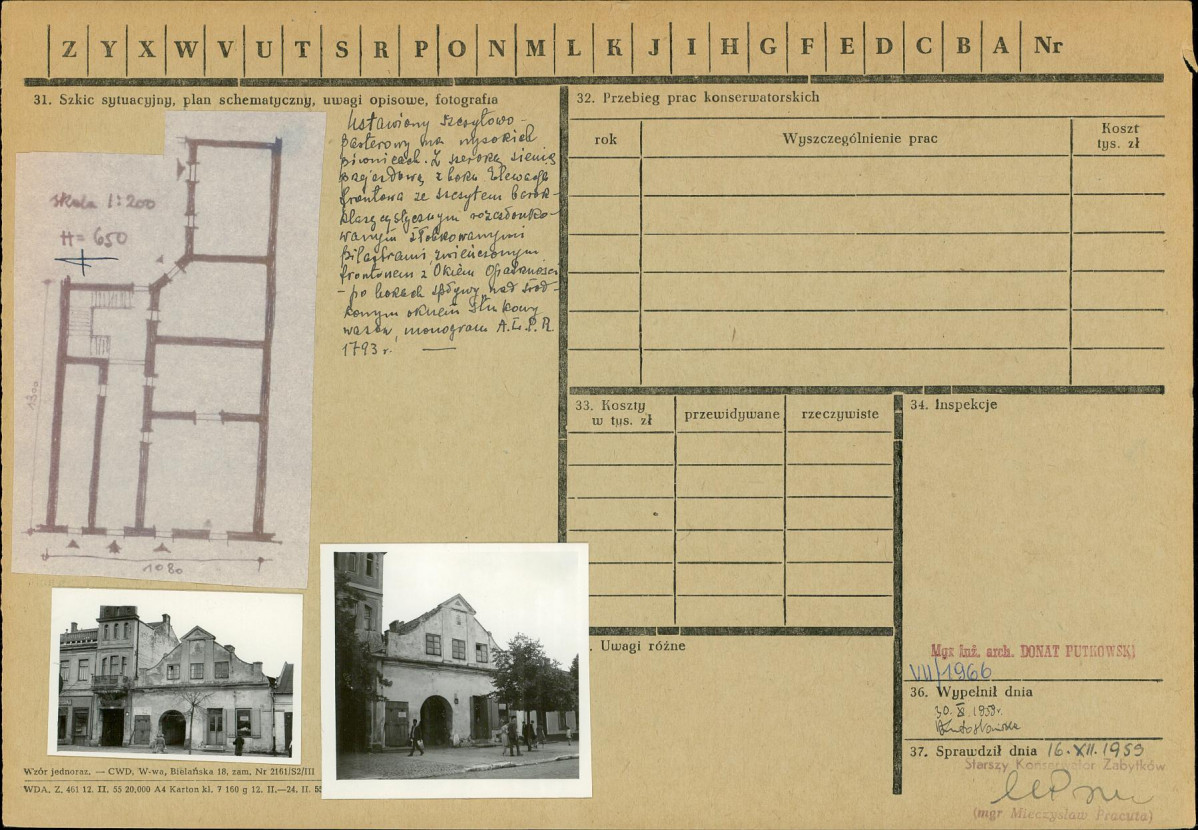 Z Y X W V U T S R P O N M L K J I H G F E D C B A Nr
31. Szkic sytuacyjny, plan schematyczny, uwagi opisowe, fotografia
skala 1:200
H = 650
1300
1080
Ustawiony szczytowo-
parterowy na wysokich
piwnicach. Z szeroką sienią
przejazdową z boku. Elewacja
frontowa ze szczytem barok-
klasycystycznym rozczłonko-
wanym żłobkowanymi
pilastrami, zwieńczonym
frontonem z Okiem Opatrzności
- po bokach spływy, nad środ-
kowym oknem stiukowy
wazon, monogram A.Ł.P.R.
1793 r.
32. Przebieg prac konserwatorskich
rok
Wyszczególnienie prac
Koszt
tys. zł
33. Koszty
w tys. zł
przewidywane
rzeczywiste
34. Inspekcje
Mgr inż. arch. DONAT PUTKOWSKI
VII/1966
. Uwagi różne
36. Wypełnił dnia
30. X. 1959r.
37. Sprawdził dnia 16.XII.1959
Starszy Konserwator Zabytków
(mgr Mieczysław Pracuta)
Wzór jednoraz. — CWD, W-wa, Bielańska 18, zam. Nr 2161/S2/III
WDA. Z. 461 12. II. 55 20,000 A4 Karton kl. 7 160 g 12. II.—24. II. 55